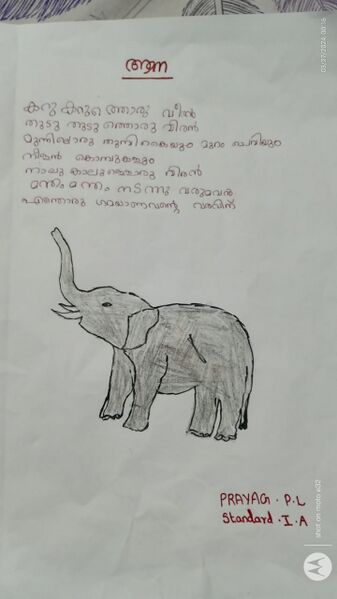 ആന
കറു കറുത്തൊരു വീരൻ
തുടു തുടുത്തൊരു വീരൻ
മുന്നിലൊരു തുമ്പികൈയും മുറം ചെവിയും
കൊമ്പുകളും
നാലു കാലുള്ളൊരു വീരൻ
മന്ദം മന്ദം നടന്നു വരുമവൻ
എന്തൊരു ഗമയാണവന്റെ വരവിന്
PRAYAG . P.L
Standard . I . A
shot on moto e32
03/27/2024, 00:16